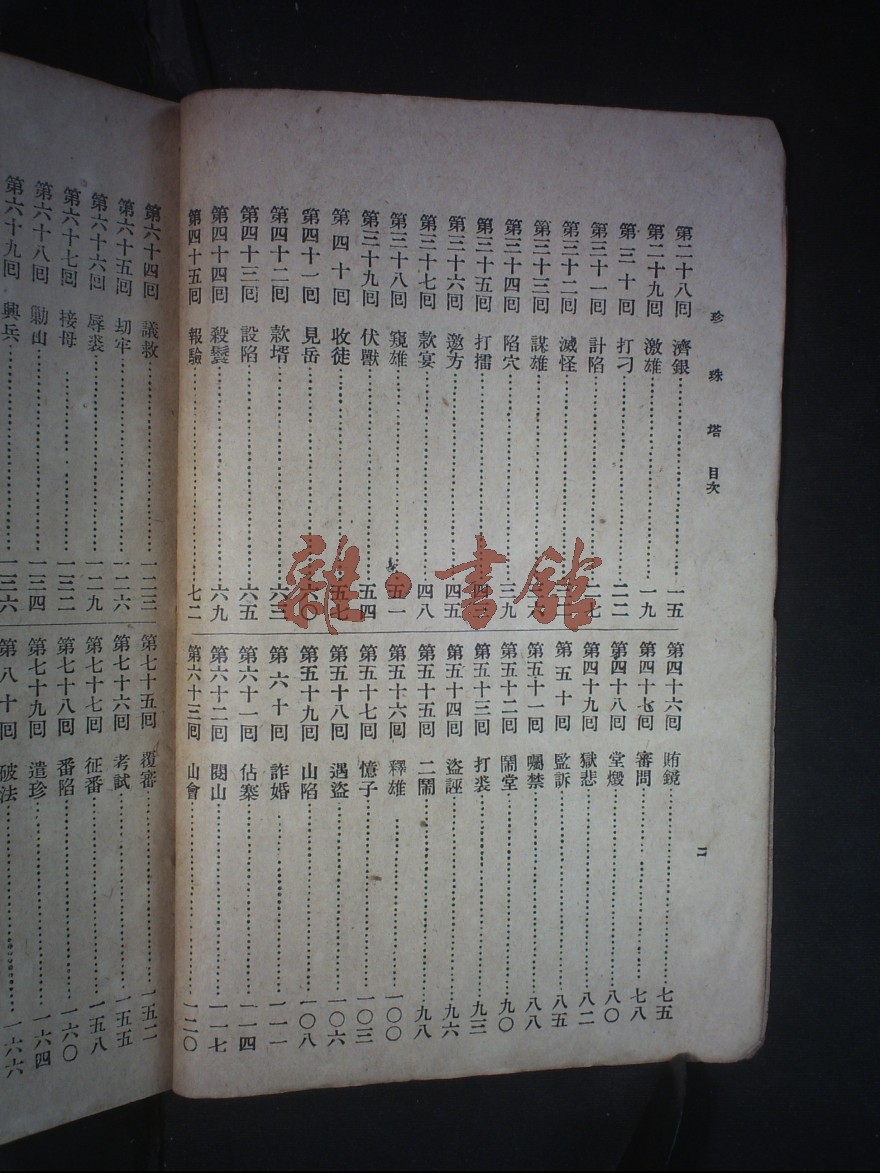 珍珠塔 目次
第二十八回 濟銀……一五
第二十九回 激雄……一九
第三十回 打刁……二二
第三十一回 計陷……二七
第三十二回 滅怪……
第三十三回 謀雄……三六
第三十四回 陷穴……三九
第三十五回 打擂……四三
第三十六回 邀方……四五
第三十七回 款宴……四八
第三十八回 窺雄……五一
第三十九回 伏獸……五四
第四十回 收徒……五七
第四十一回 見岳……六〇
第四十二回 款壻……六三
第四十三回 設陷……六五
第四十四回 殺鬟……六九
第四十五回 報驗……七二
第四十六回 賄鏡……七五
第四十七回 審問……七八
第四十八回 堂燬……八〇
第四十九回 獄悲……八二
第五十回 監訴……八五
第五十一回 囑禁……八八
第五十二回 鬧堂……九〇
第五十三回 打裘……九三
第五十四回 盜誣……九六
第五十五回 二鬧……九八
第五十六回 釋雄……一〇〇
第五十七回 憶子……一〇三
第五十八回 遇盜……一〇六
第五十九回 山陷……一〇八
第六十回 詐婚……一一一
第六十一回 佔寨……一一四
第六十二回 閱山……一一七
第六十三回 山會……一二〇
二
第六十四回 議救……一二三
第六十五回 刧牢……一二六
第六十六回 辱裘……一二九
第六十七回 接母……一三二
第六十八回 勦山……一三四
第六十九回 興兵……一三六
第七十五回 覆審……一五二
第七十六回 考試……一五五
第七十七回 征番……一五八
第七十八回 番陷……一六〇
第七十九回 遣珍……一六四
第八十回 破法……一六六
雜·書館